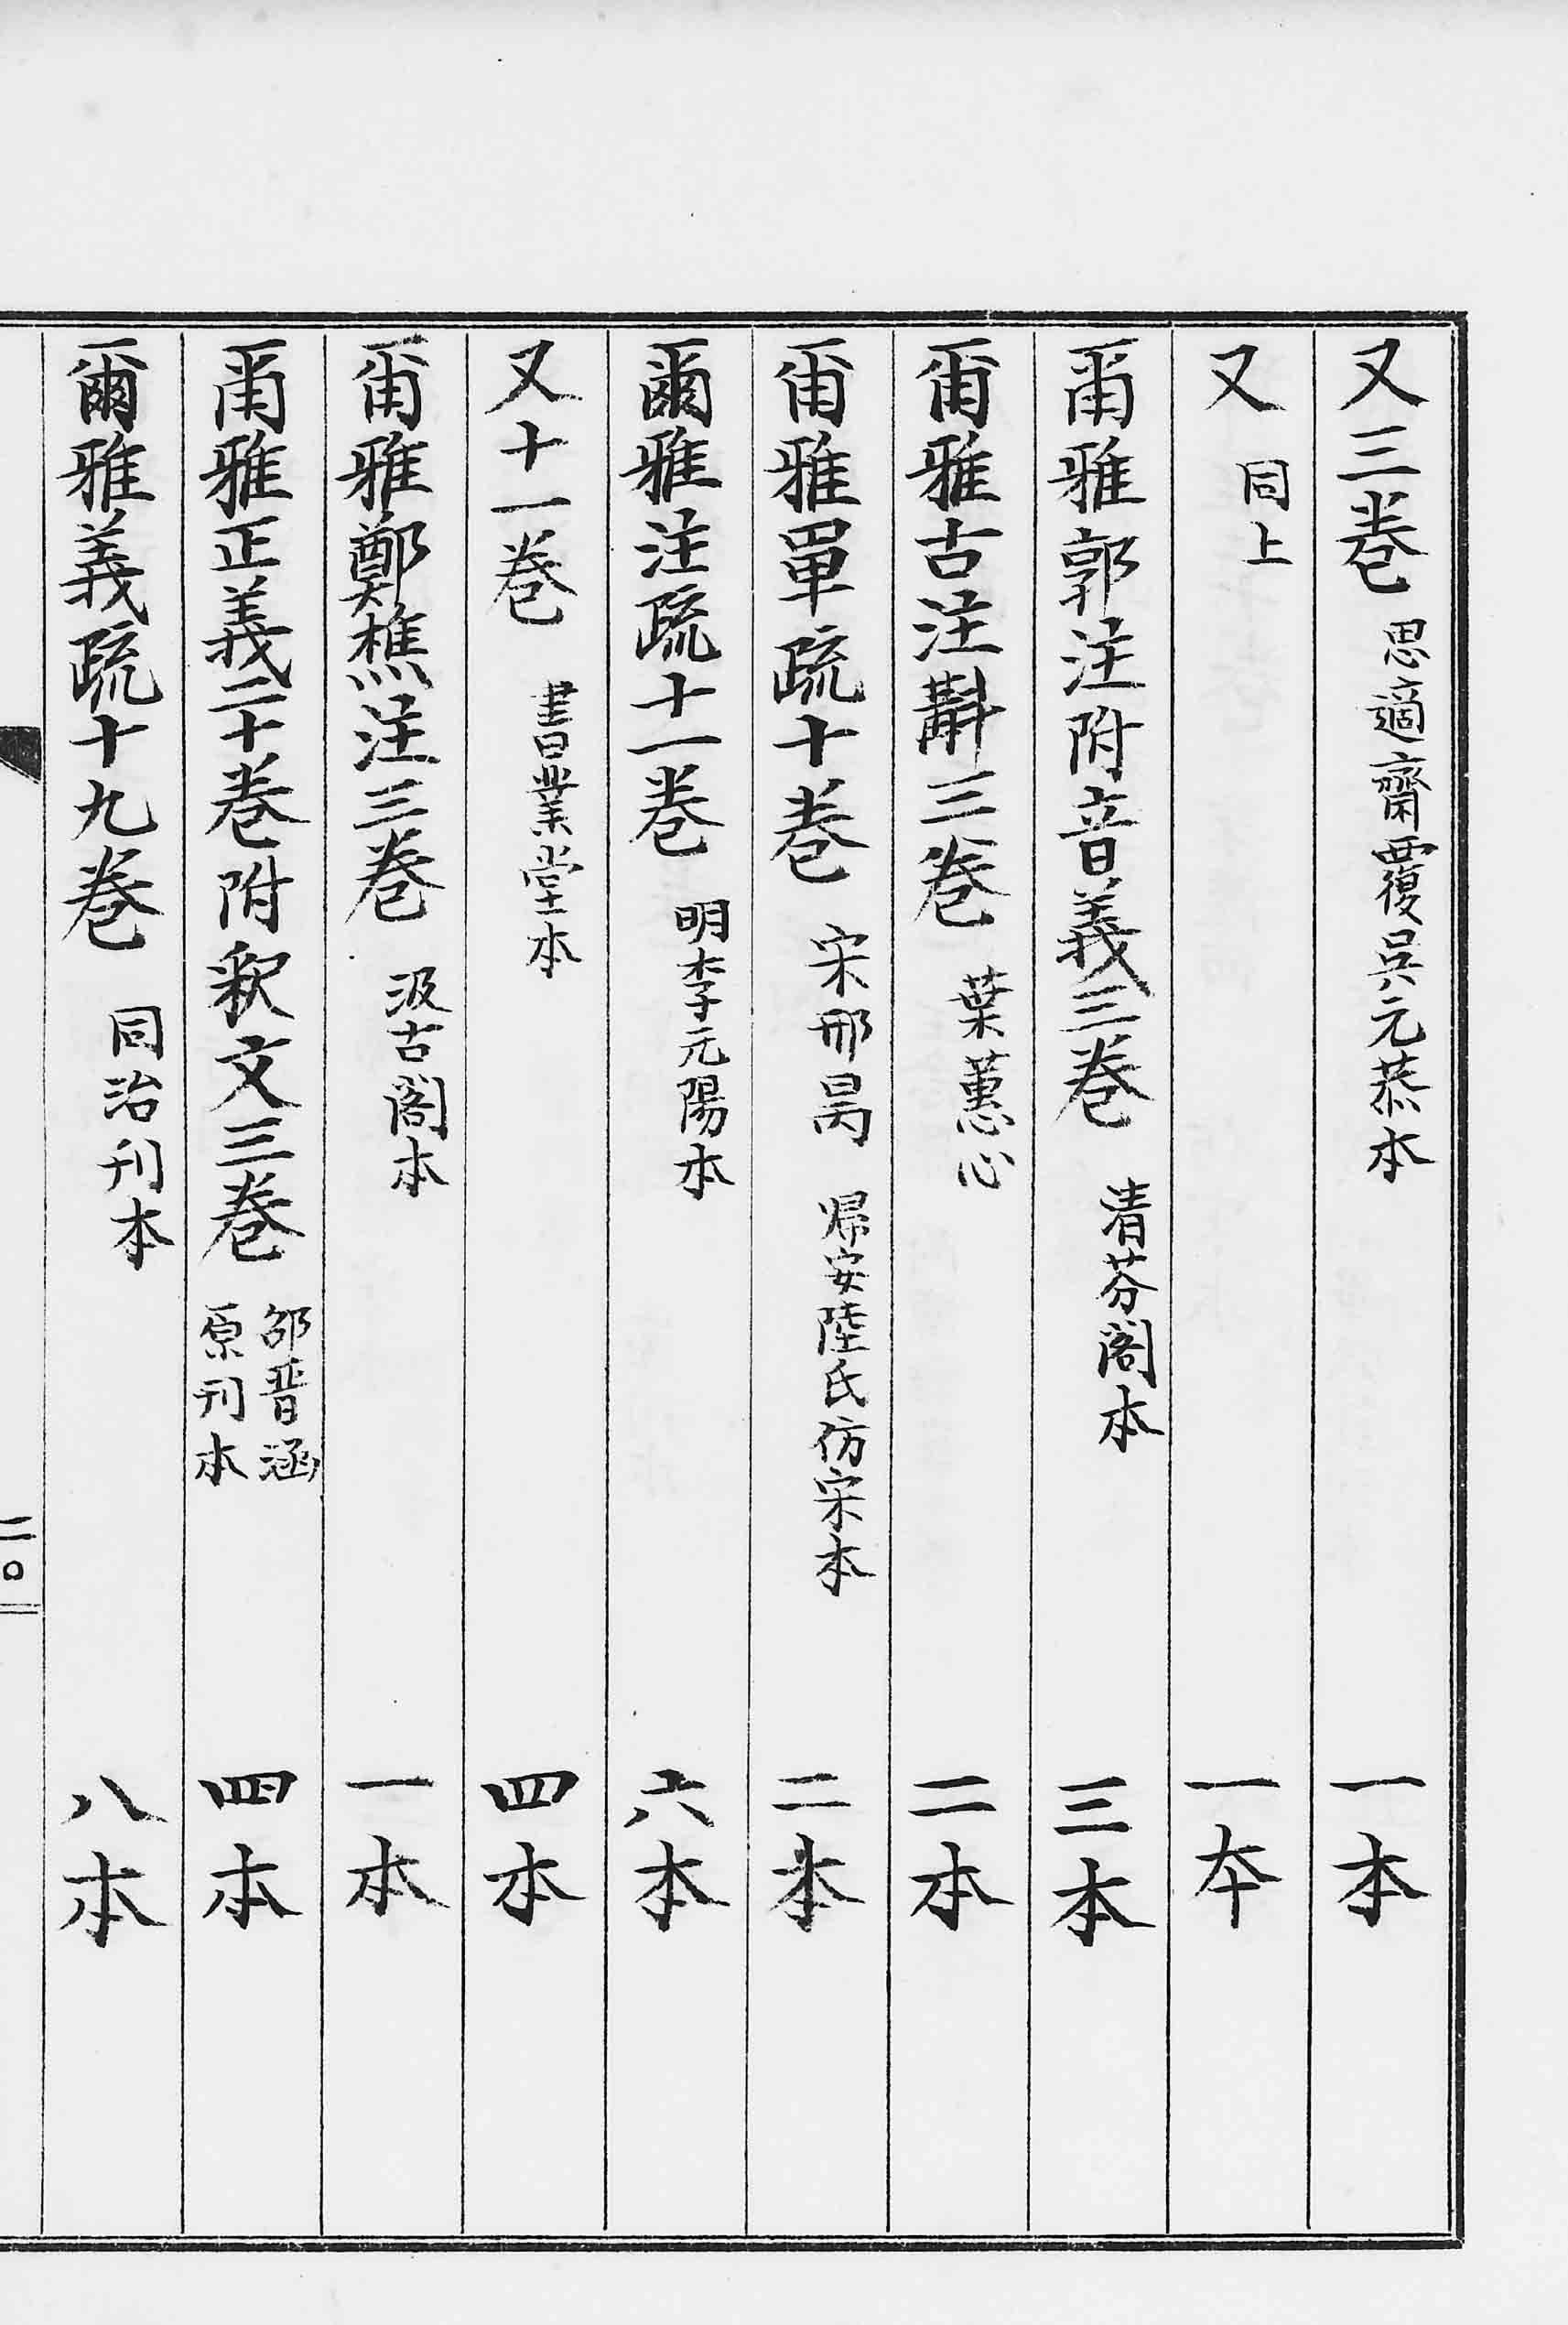 又三卷 思適齋覆吳元恭本 一本
又 同上 一本
爾雅郭注附音義三卷 清芬閣本 三本
爾雅古注斠三卷 葉蕙心 二本
爾雅單疏十卷 宋邢昺 歸安陸氏仿宋本 二本
爾雅注疏十一卷 明李元陽本 六本
又十一卷 書業堂本 四本
爾雅鄭樵注三卷 汲古閣本 一本
爾雅正義二十卷附釈文三卷 邵晉涵原刊本 四本
爾雅義疏十九卷 同治刊本 八本
二〇